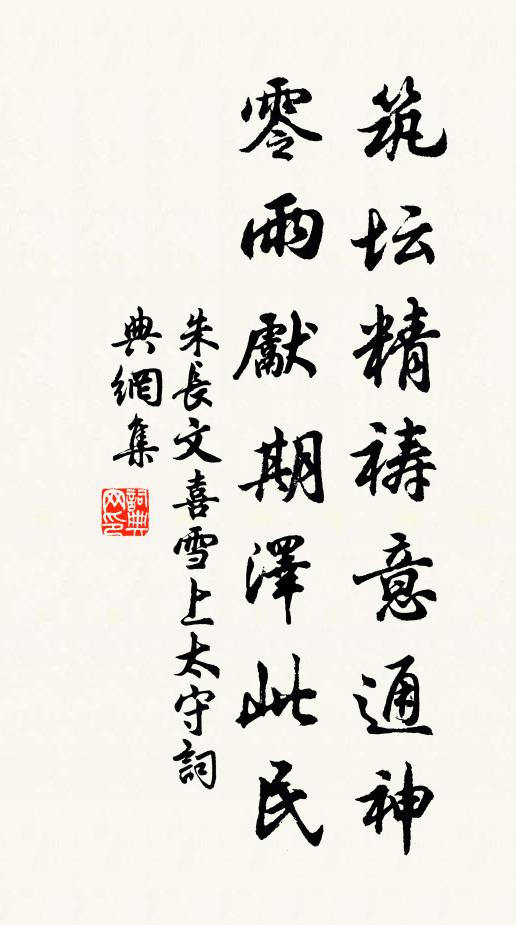 筑坛精祷意通神
零雨獻期澤此民
朱長文喜雪上太守詞
典網集
詞典网印